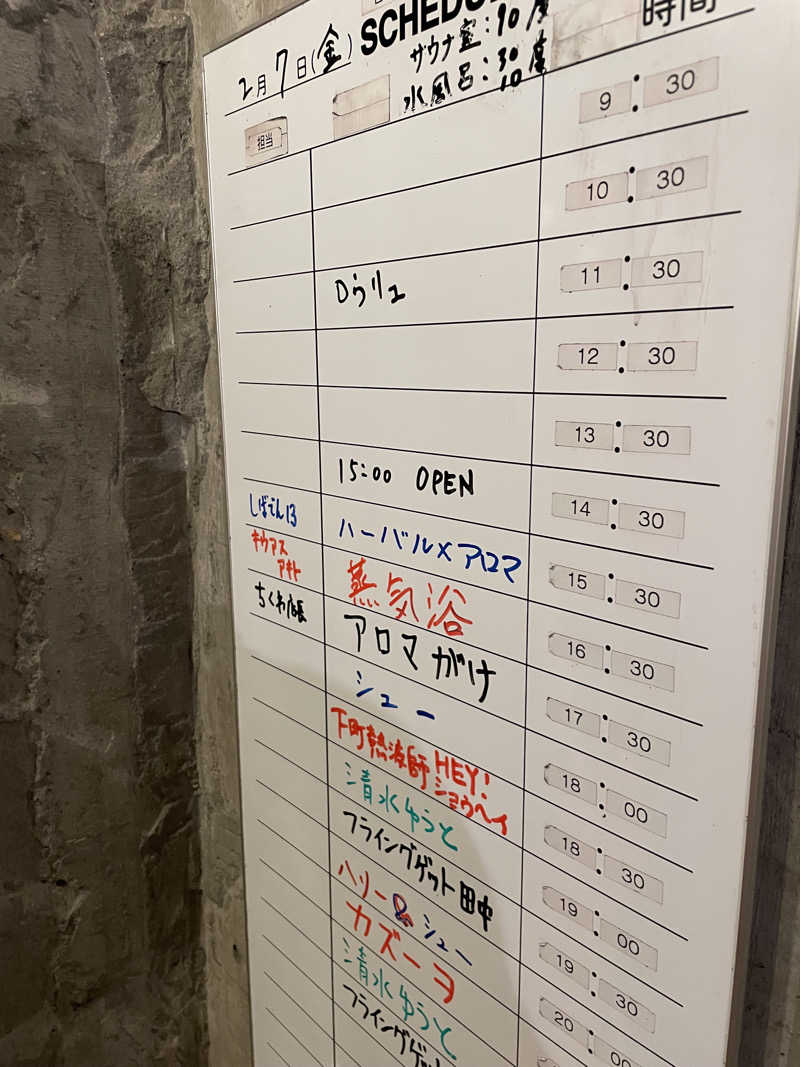 2月7日(金) SCHEDU
サウナ室:90度
水風呂:30
10度
時間
担当
9:30
10:30
Dゥリュ 11:30
12:30
13:30
15:00 OPEN 14:30
しばてん13 ハーバル×アロマ 15:30
キウアス
アキト 蒸気浴 16:30
ちくわ店長 アロマがけ 17:30
シュー 18:00
下町熱波師 HEY!
ショウヘイ 18:30
清水ゆうと 19:00
フライングゲット田中 19:30
ハリー&シュー 20:00
カズーヨ
清水ゆうと
フライングゲット